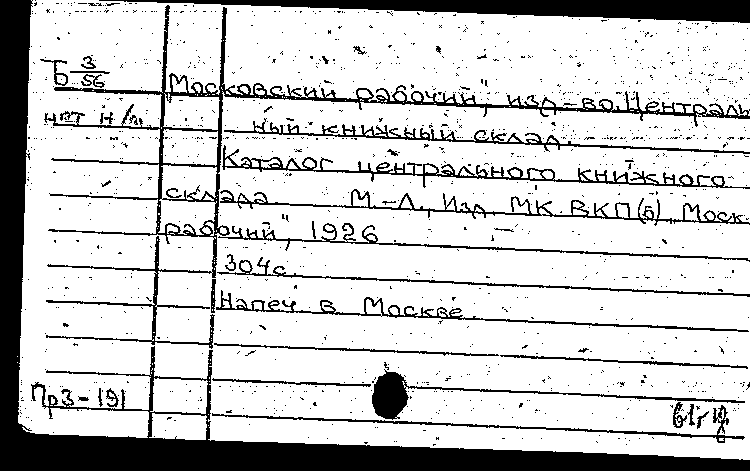 Б 3/56
Московский рабочий", изд-во. Централь
нет н/п. ный книжный склад.
Каталог центрального книжного
склада М.-Л., Изд. МК ВКП(б) „Моск.
рабочий", 1926
304с.
Напеч в Москве.
Пр3-191